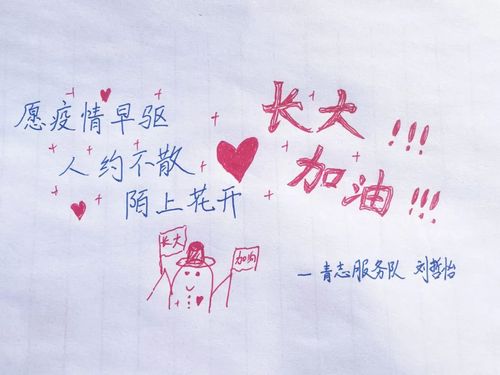 愿疫情早驱
人约不散
陌上花开
长大!!!
加油!!!
长大
加油
—青志服务队 刘哲怡